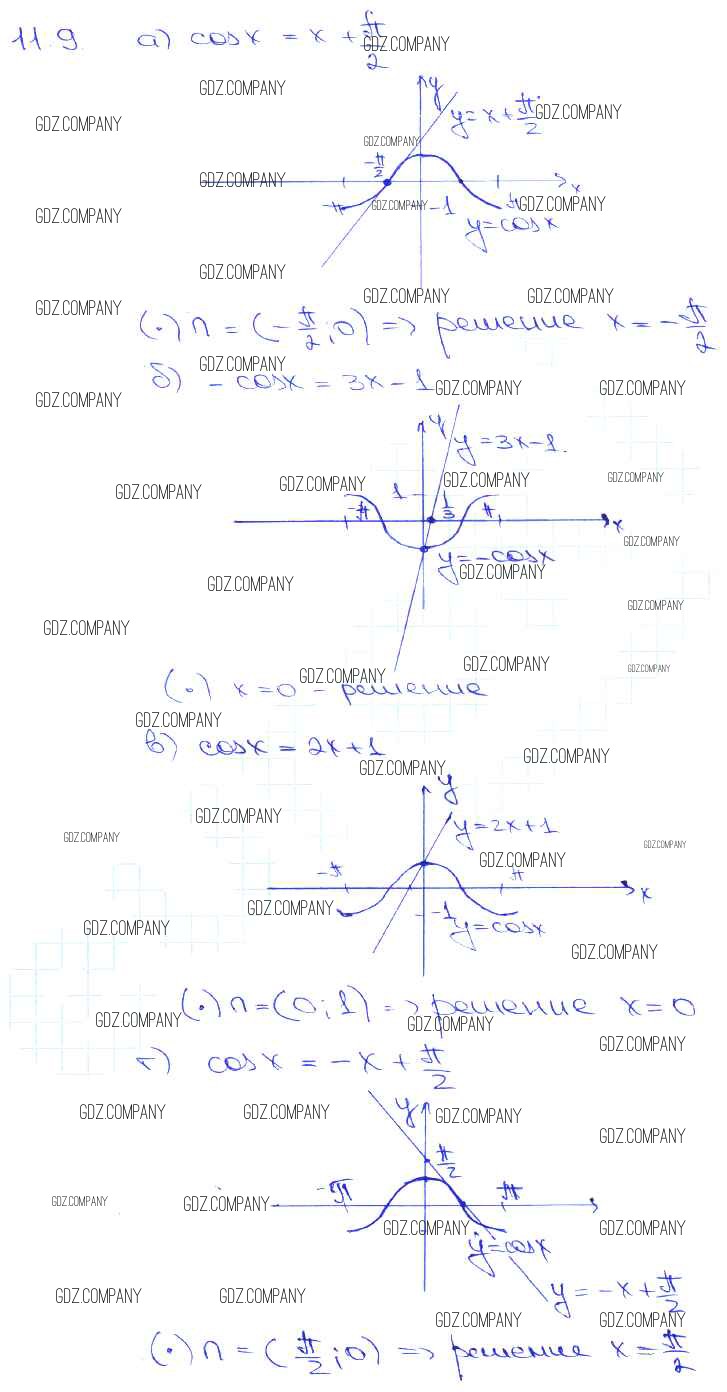 11.9. а) cosx = x + π/2
y
y = x + π/2
-π/2
x
-π -1 π
y = cosx
(·) п = (-π/2; 0) => решение x = -π/2
б) -cosx = 3x - 1
y
y = 3x-1.
1 1/3
-π π
x
y = -cosx
(·) x = 0 - решение
в) cosx = 2x + 1
y
y = 2x+1
-π π
x
-1 y = cosx
(·) п = (0; 1) => решение x = 0
г) cosx = -x + π/2
y
π/2
-π π
y = cosx
y = -x + π/2
(·) п = (π/2; 0) => решение x = π/2
GDZ.COMPANY